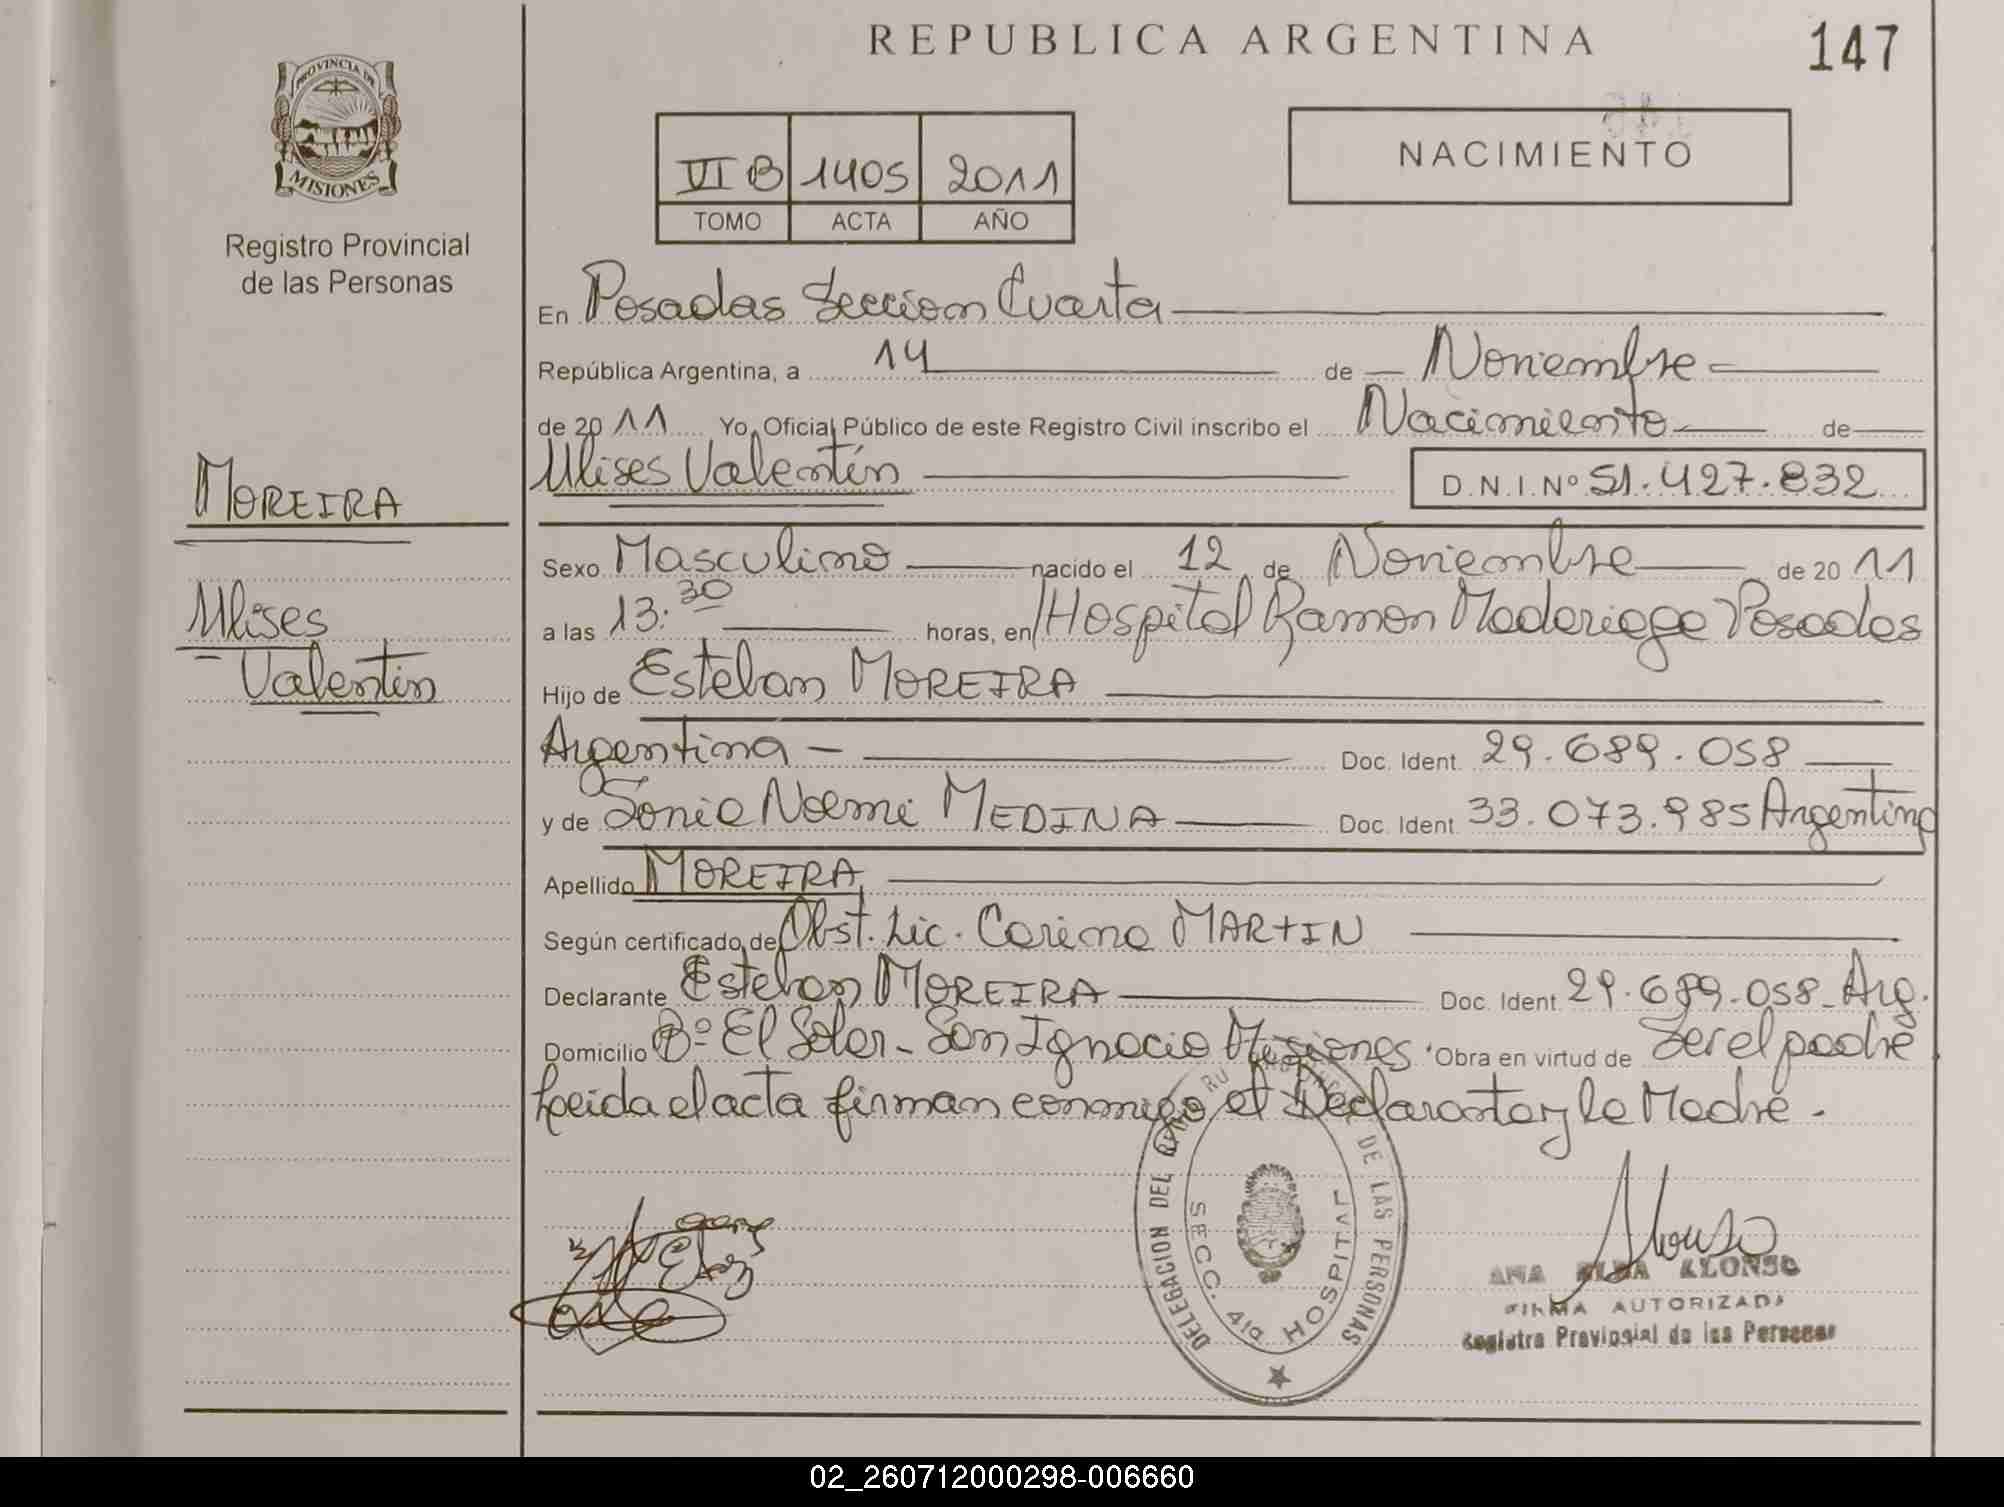 REPUBLICA ARGENTINA
147
PROVINCIA DE
MISIONES
Registro Provincial
de las Personas
VI B 1405 2011
TOMO ACTA AÑO
NACIMIENTO
En Posadas Seccion Cuarta
República Argentina, a 14 de Noviembre
de 2011 Yo, Oficial Público de este Registro Civil inscribo el Nacimiento de
Ulises Valentín D.N.I.Nº 51.427.832
MOREIRA
Ulises
Valentín
Sexo Masculino nacido el 12 de Noviembre de 2011
a las 13:30 horas, en Hospital Ramon Madariaga Posadas
Hijo de Esteban MOREIRA
Argentina Doc. Ident. 29.689.058
y de Sonia Noemi MEDINA Doc. Ident. 33.073.985 Argentina
Apellido MOREIRA
Según certificado de Obst. Lic. Carina MARTIN
Declarante Esteban MOREIRA Doc. Ident. 29.689.058 Arg.
Domicilio Bº El Solar - San Ignacio Misiones. Obra en virtud de Ser el padre
Leida el acta firman conmigo el Declarante y la Madre.
DELEGACION DEL DE LAS PERSONAS
SECC. 4ta HOSPITAL
Alonso
ANA ELBA ALONSO
FIRMA AUTORIZADA
Registro Provincial de las Personas
02_260712000298-006660